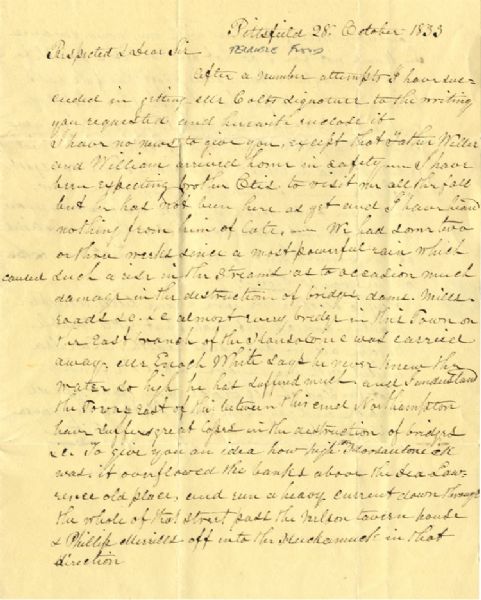 Pittsfield 28. October 1833
Respected & Dear Sir
TERRIBLE FLOOD
After a number attempts I have suc-
ceeded in getting Mr Colts signature to the writing
you requested and herewith inclose it
I have no news to give you, except that Father Willer
and William arrived home in safety I have
been expecting brother Otis to visit me all the fall
but he has not been here as yet and I have heard
nothing from him of late, We had some two
or three weeks since a most powerful rain which
caused such a rise in the Streams as to occasion much
damage in the destruction of bridges dams. Mills
roads &c. &c almost every bridge in this Town on
the East branch of the was carried
away. Mr Enoch White says he never knew the
water so high he has suffered much and I understand
the Towns east of this between this and Northampton
have suffered great loss in the destruction of bridges
&c. To give you an idea how high the
was it overflowed the banks above the Law-
rence old place, and run a heavy current down through
the whole of that street past the tavern house
& Phillip Merrills off into the in that
direction